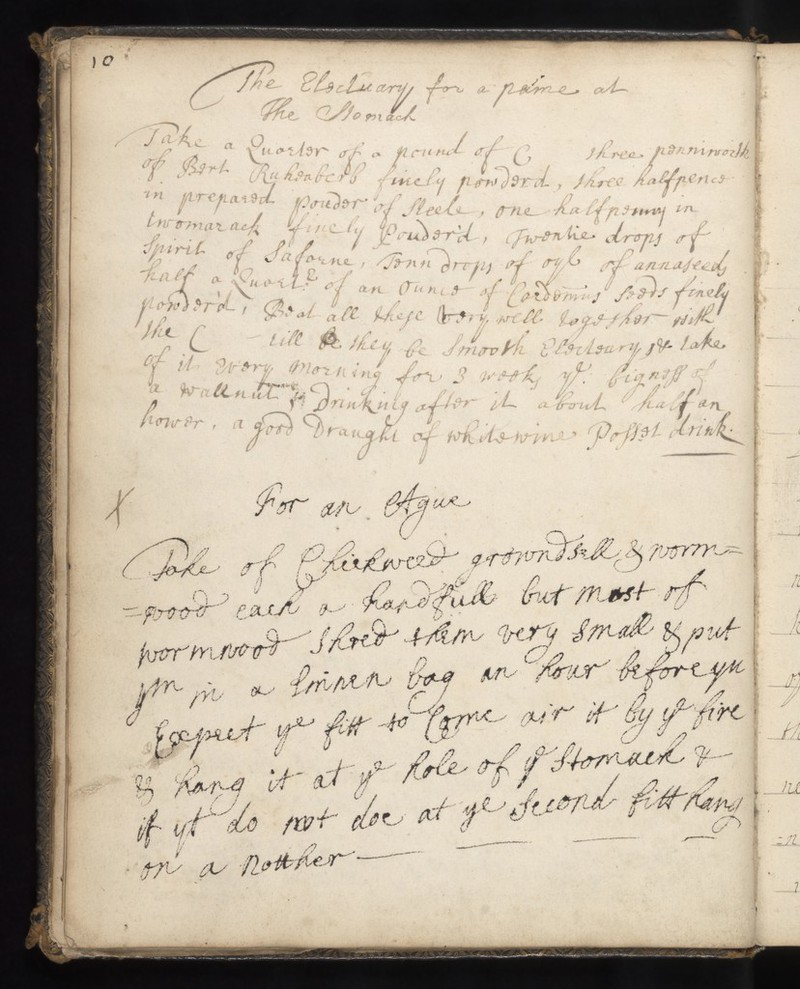 10
The Electuary for a paine at
the Stomack
Take a Quarter of a pound of C three penniworth
of Best Ruhenberb finely powderd, three halfpence
in prepared pouder of Steele, one halfpenny in
finely Pouder'd, Twentie drops of
Spirit of Safarne, Tenn drops of oyl of annaseeds
half a Quartr of an ounce of Cardomius seeds finely
powder'd, Beat all these very well together with
the C till they be Smooth Electuary & take
of it every morning for 3 weeks ye bigness of
a wallnut Drinking after it about half an
hower, a good Draught of whitewine Posset drink.
X
For an Ague
Take of Chickweed growndsell & worm=
=wood each a handfull but most of
wormwood Shred them very Small & put
ym in a linnen bag an hour before yu
Expect ye fitt to Come air it by ye fire
& hang it at ye hole of ye Stomach &
if yt do not doe at ye Second fitt hang
on a notther